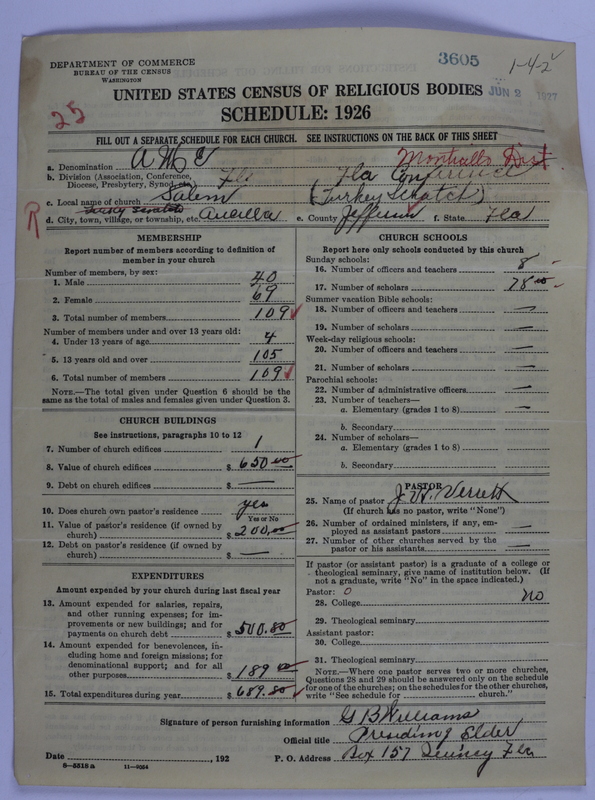 DEPARTMENT OF COMMERCE
BUREAU OF THE CENSUS
WASHINGTON
3605
1-4-2
UNITED STATES CENSUS OF RELIGIOUS BODIES
JUN 2 1927
SCHEDULE: 1926
25
FILL OUT A SEPARATE SCHEDULE FOR EACH CHURCH. SEE INSTRUCTIONS ON THE BACK OF THIS SHEET
a. Denomination A M E Monticello Dist
b. Division (Association, Conference, Diocese, Presbytery, Synod) Fla Fla Conference
c. Local name of church Salem (Turkey Scratch)
R
Turkey Scratch
d. City, town, village, or township, etc. Aucilla e. County Jefferson f. State Fla
MEMBERSHIP
Report number of members according to definition of
member in your church
Number of members, by sex:
1. Male 40
2. Female 69
3. Total number of members 109
Number of members under and over 13 years old:
4. Under 13 years of age 4
5. 13 years old and over 105
6. Total number of members 109
NOTE.—The total given under Question 6 should be the
same as the total of males and females given under Question 3.
CHURCH BUILDINGS
See instructions, paragraphs 10 to 12
7. Number of church edifices 1
8. Value of church edifices $650.00
9. Debt on church edifices $ —
10. Does church own pastor's residence yes
Yes or No
11. Value of pastor's residence (if owned by
church) $200.00
12. Debt on pastor's residence (if owned by
church) $ —
EXPENDITURES
Amount expended by your church during last fiscal year
13. Amount expended for salaries, repairs,
and other running expenses; for im-
provements or new buildings; and for
payments on church debt $500.80
14. Amount expended for benevolences, in-
cluding home and foreign missions; for
denominational support; and for all
other purposes $189.00
15. Total expenditures during year $689.80
CHURCH SCHOOLS
Report here only schools conducted by this church
Sunday schools:
16. Number of officers and teachers 8
17. Number of scholars 78
Summer vacation Bible schools:
18. Number of officers and teachers —
19. Number of scholars —
Week-day religious schools:
20. Number of officers and teachers —
21. Number of scholars —
Parochial schools:
22. Number of administrative officers —
23. Number of teachers—
a. Elementary (grades 1 to 8) —
b. Secondary
24. Number of scholars—
a. Elementary (grades 1 to 8) —
b. Secondary
PASTOR
25. Name of pastor J. W. Verrett
(If church has no pastor, write "None")
26. Number of ordained ministers, if any, em-
ployed as assistant pastors —
27. Number of other churches served by the
pastor or his assistants —
If pastor (or assistant pastor) is a graduate of a college or
theological seminary, give name of institution below. (If
not a graduate, write "No" in the space indicated.)
Pastor: 0
28. College no
29. Theological seminary
Assistant pastor:
30. College
31. Theological seminary
NOTE.—Where one pastor serves two or more churches,
Questions 28 and 29 should be answered only on the schedule
for one of the churches; on the schedules for the other churches,
write "See schedule for church."
Signature of person furnishing information G B Williams
Official title Presiding Elder
Date , 192 P. O. Address Box 157 Quincy Fla
8—5318 a 11—9054